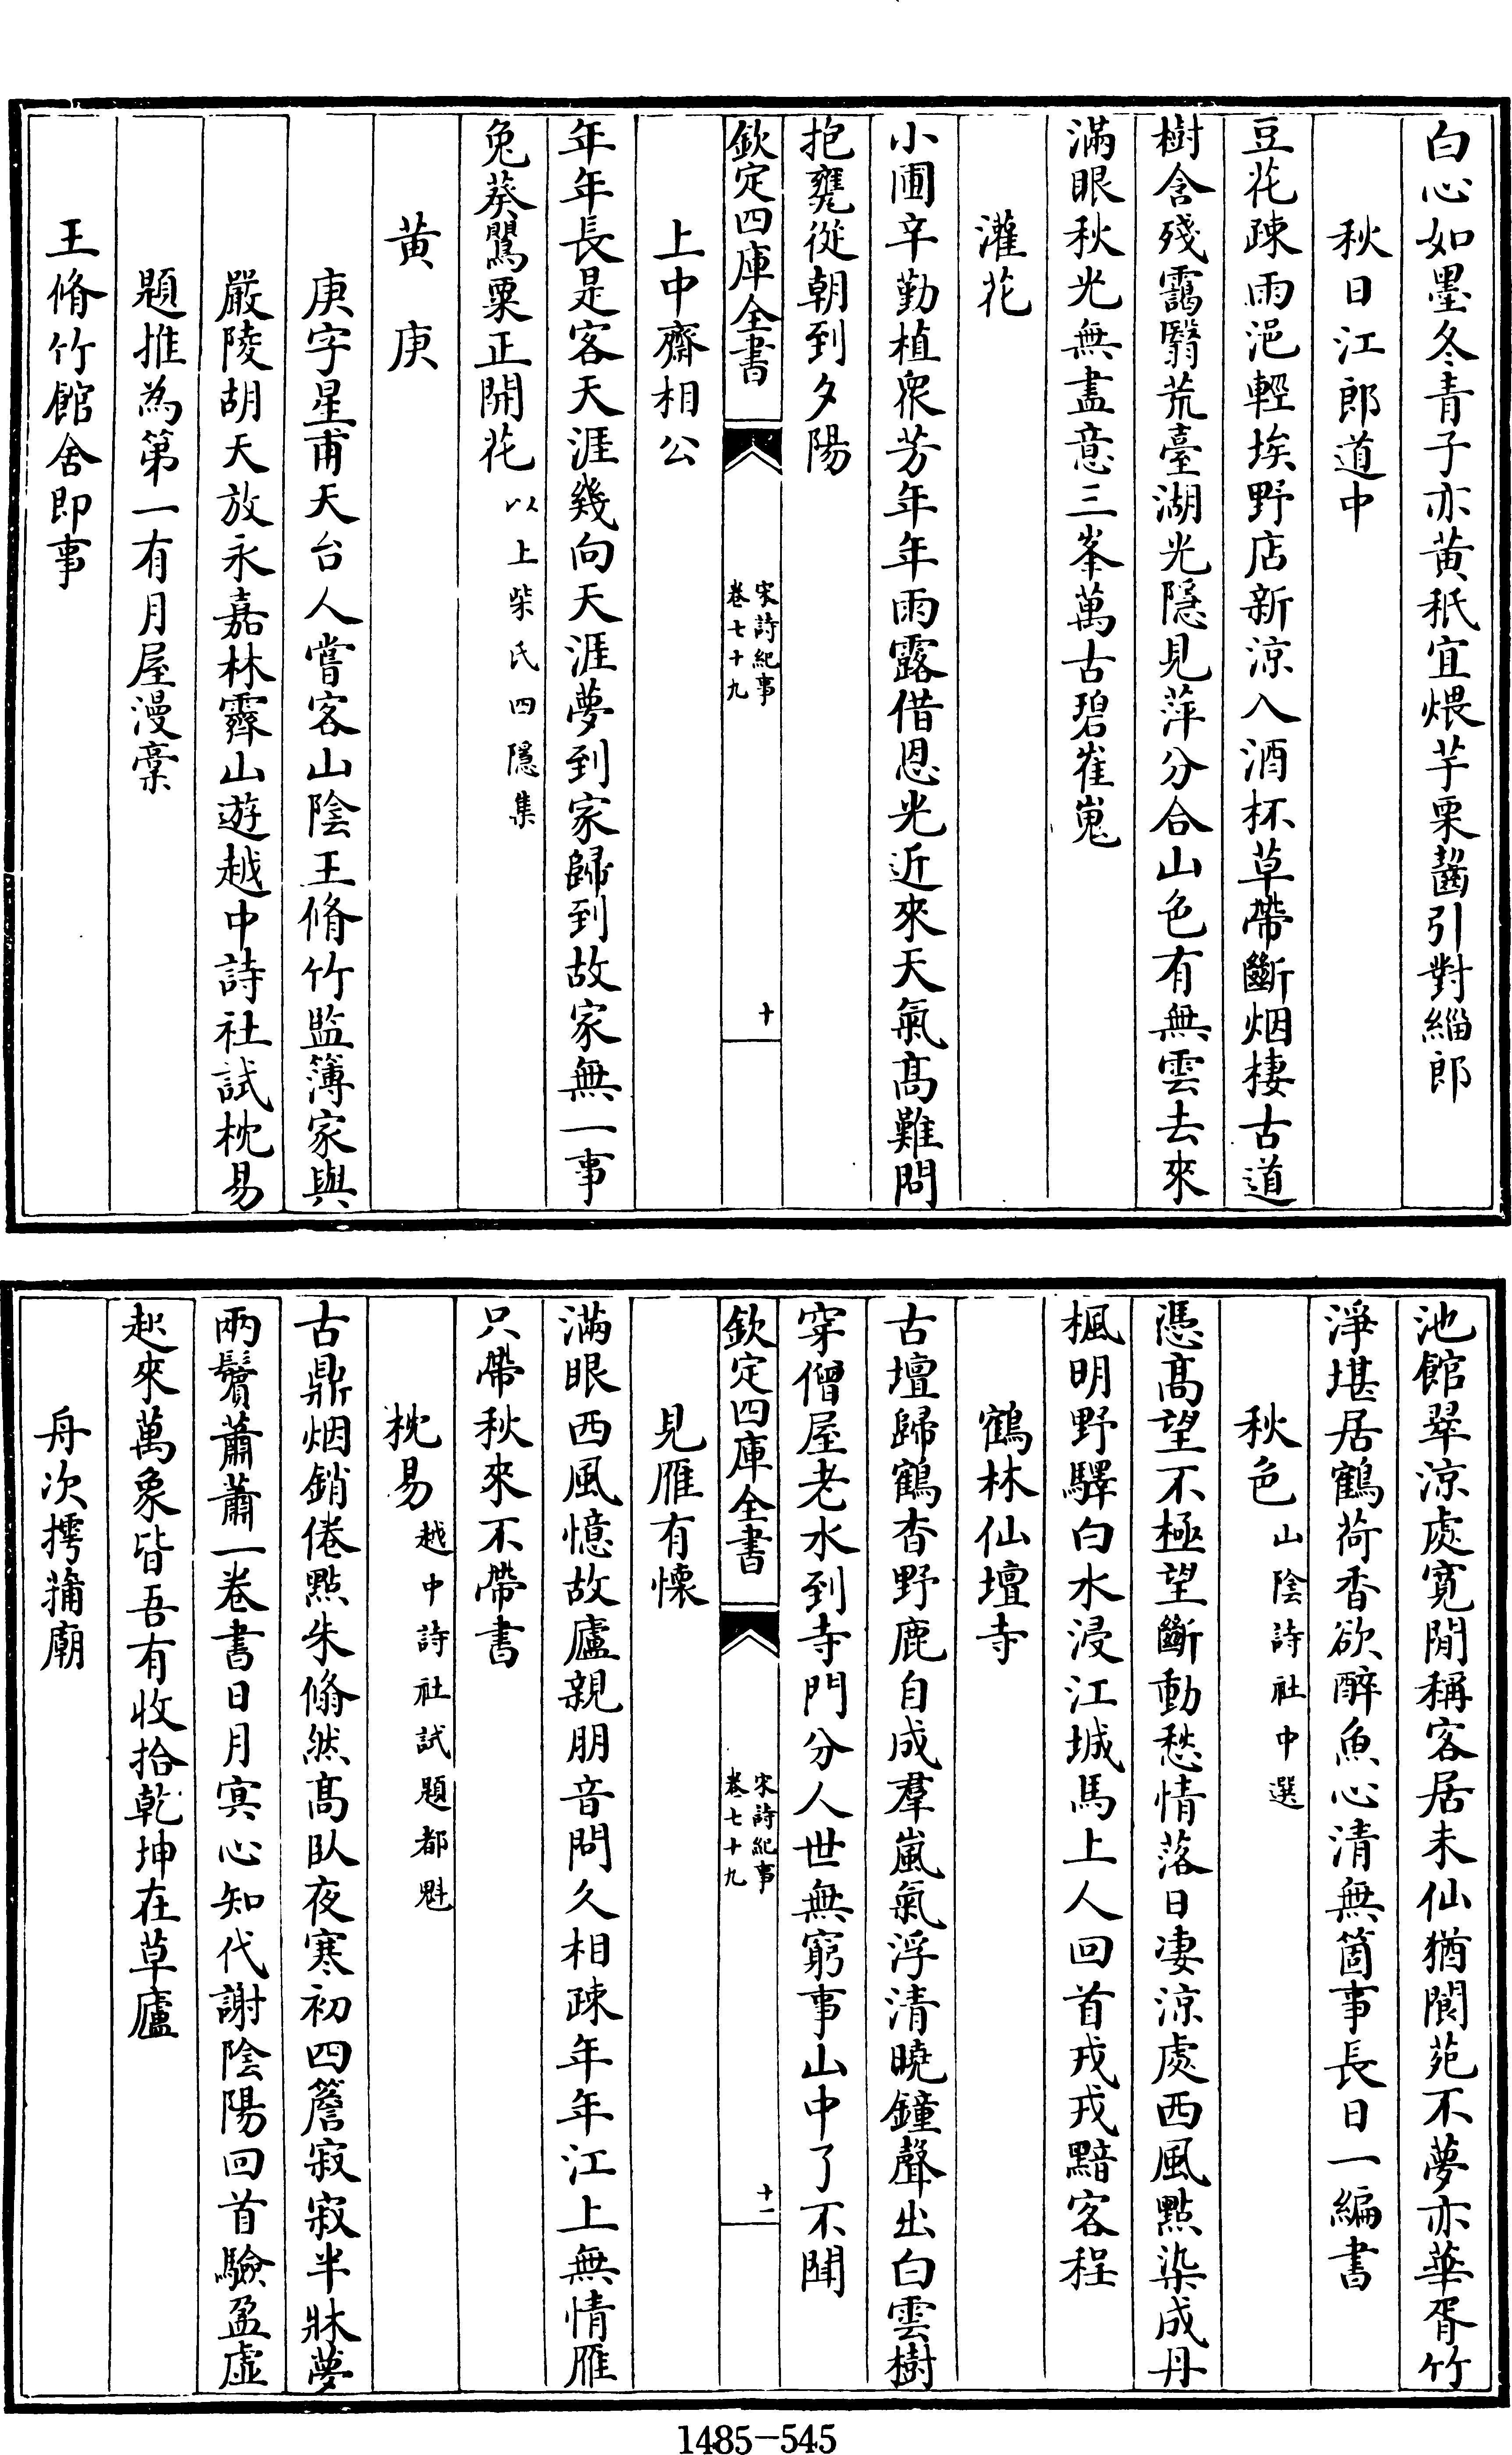 白心如墨冬青子亦黄秖宜煨芋栗齧引對緇郎
秋日江郎道中
豆花疎雨浥輕埃野店新涼入酒杯草帶斷烟棲古道
樹含殘靄翳荒臺湖光隱見萍分合山色有無雲去來
滿眼秋光無盡意三峯萬古碧崔嵬
灌花
小圃辛勤植衆芳年年雨露借恩光近來天氣髙難問
抱甕從朝到夕陽
欽定四庫全書
宋詩紀事
卷七十九
十
上中齋相公
年年長是客天涯幾向天涯夢到家歸到故家無一事
兔葵鸎粟正開花以上柴氏四隱集
黄庚
庚字星甫天台人嘗客山陰王脩竹監簿家與
嚴陵胡天放永嘉林霽山遊越中詩社試枕易
題推為第一有月屋漫稾
王脩竹館舍即事
池館翠涼處寬閒稱客居未仙猶閬苑不夢亦華胥竹
淨堪居鶴荷香欲醉魚心清無箇事長日一編書
秋色山陰詩社中選
憑髙望不極望斷動愁情落日凄涼處西風點染成丹
楓明野驛白水浸江城馬上人回首戎戎黯客程
鶴林仙壇寺
古壇歸鶴杳野鹿自成羣嵐氣浮清曉鐘聲出白雲樹
穿僧屋老水到寺門分人世無窮事山中了不聞
欽定四庫全書
宋詩紀事
卷七十九
十一
見雁有懷
滿眼西風憶故廬親朋音問久相疎年年江上無情雁
只帶秋來不帶書
枕易越中詩社試題都魁
古鼎烟銷倦點朱翛然髙臥夜寒初四簷寂寂半牀夢
兩鬢蕭蕭一卷書日月㝠心知代謝陰陽回首驗盈虛
起來萬象皆吾有收拾乾坤在草廬
舟次摴蒱廟
1485-545